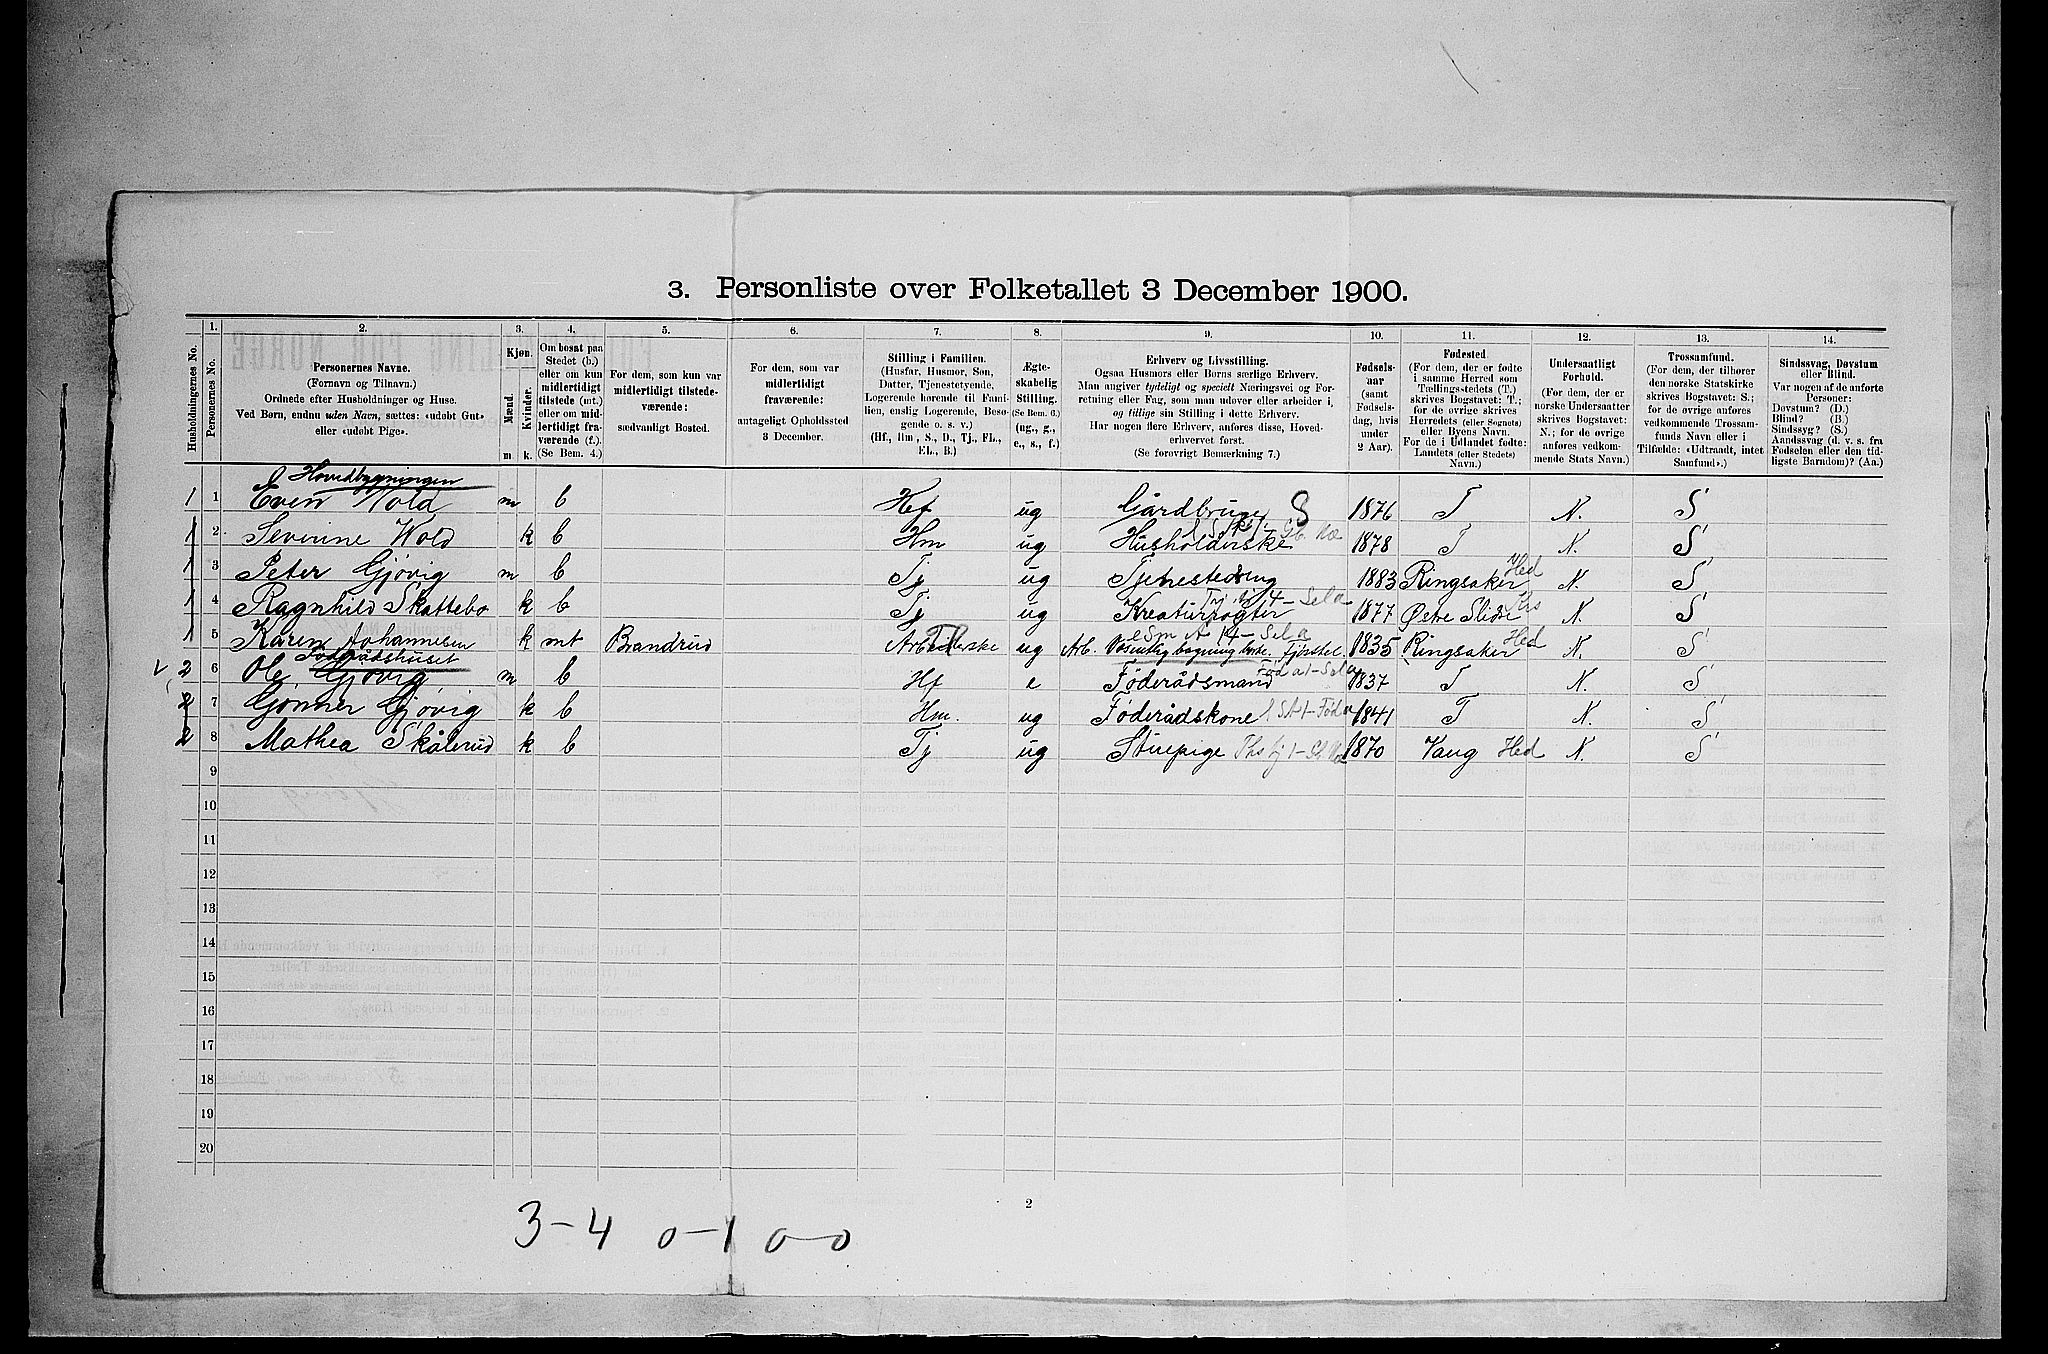 3. Personliste over Folketallet 3 December 1900.
Husholdningernes No.
1. Personernes No.
2. Personernes Navne. (Fornavn og Tilnavn.) Ordnede efter Husholdninger og Huse. Ved Børn, endnu uden Navn, sættes: «udøbt Gut» eller «udøbt Pige».
3. Kjøn. Mænd. Kvinder. m. k.
4. Om bosat paa Stedet (b.) eller om kun midlertidigt tilstede (mt.) eller om midlertidigt fraværende (f.) (Se Bem. 4.)
5. For dem, som kun var midlertidigt tilstedeværende: sædvanligt Bosted.
6. For dem, som var midlertidigt fraværende: antageligt Opholdssted 3 December.
7. Stilling i Familien. (Husfar, Husmor, Søn, Datter, Tjenestetyende, Logerende hørende til Familien, enslig Logerende, Besøgende o. s. v.) (Hf., Hm., S., D., Tj., FL., EL., B.)
8. Ægteskabelig Stilling. (Se Bem. 6.) (ug., g., e., s., f.)
9. Erhverv og Livsstilling. Ogsaa Husmors eller Børns særlige Erhverv. Man angiver tydeligt og specielt Næringsvei og Forretning eller Fag, som man udøver eller arbeider i, og tillige sin Stilling i dette Erhverv. Har nogen flere Erhverv, anføres disse, Hovederhvervet først. (Se forøvrigt Bemærkning 7.)
10. Fødselsaar (samt Fødselsdag, hvis under 2 Aar).
11. Fødested. (For dem, der er fødte i samme Herred som Tællingsstedets (T.) skrives Bogstavet: T.; for de øvrige skrives Herredets (eller Sognets) eller Byens Navn. For de i Udlandet fødte: Landets (eller Stedets) Navn.)
12. Undersaatligt Forhold. (For dem, der er norske Undersaatter skrives Bogstavet: N.; for de øvrige anføres vedkommende Stats Navn.)
13. Trossamfund. (For dem, der tilhører den norske Statskirke skrives Bogstavet: S.; for de øvrige anføres vedkommende Trossamfunds Navn eller i Tilfælde: «Udtraadt, intet Samfund».)
14. Sindssvag, Døvstum eller Blind. Var nogen af de anførte Personer: Døvstum? (D.) Blind? (B.) Sindssyg? (S.) Aandssvag (d. v. s. fra Fødselen eller den tidligste Barndom)? (Aa.)
Hovedbygningen
1 1 Even Wold m b Hf ug Gårdbruger S 1876 T N. S
1 2 Severine Wold k b Hm ug Husholderske 1878 T N. S
1 3 Peter Gjøvig m b Tj ug Tjenestedreng 1883 Ringsaker Hed N. S
1 4 Ragnhild Skattebo k b Tj ug Kreaturrøgter 1877 Østre Slidre N. S
1 5 Karen Johannesen k mt Brandrud Arbeiderske ug Arb. 1835 Ringsaker Hed N. S
Föderådshuset
2 6 Ole Gjøvig m b Hf e Föderådsmand 1837 T N. S
2 7 Gønner Gjøvig k b Hm. ug Föderådskone 1841 T N. S
2 8 Mathea Skålerud k b Tj ug Stuepige 1870 Vang Hed N. S
9
10
11
12
13
14
15
16
17
18
19
20
2
3-4 0-1 0-0